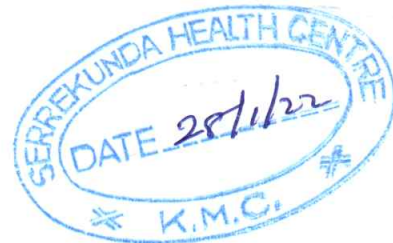 SERREKUNDA HEALTH CENTRE
DATE 28/1/22
K.M.C.